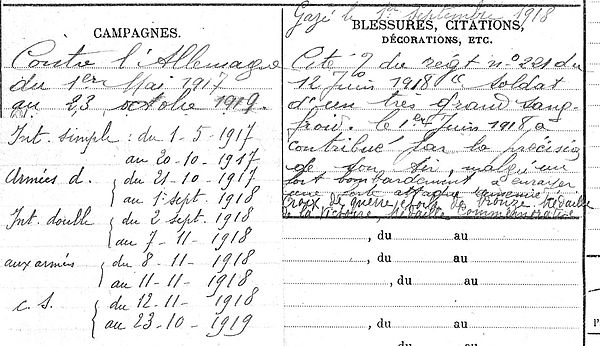 Gazé le 1er Septembre 1918
CAMPAGNES.
Contre l'Allemagne
du 1er Mai 1917
au 23 octobre 1919.
Int. simple : du 1-5-1917
au 20-10-1917
Armées d. { du 21-10-1917
au 1 sept. 1918
Int. double { du 2 sept. 1918
au 7-11-1918
aux armées { du 8-11-1918
au 11-11-1918
c. S. { du 12-11-1918
au 23-10-1919
BLESSURES, CITATIONS,
DÉCORATIONS, ETC.
Cité O du régt n° 221 du
12 Juin 1918 soldat
d'un très grand sang-
froid. le 1er Juin 1918, a
contribué par la précision
de son tir, malgré un
fort bombardement à enrayer
une forte attaque ennemie
Croix de guerre étoile de bronze Médaille
de la Victoire, Médaille Commémorative
, du au
, du au
, du au
, du au
, du au
, du au